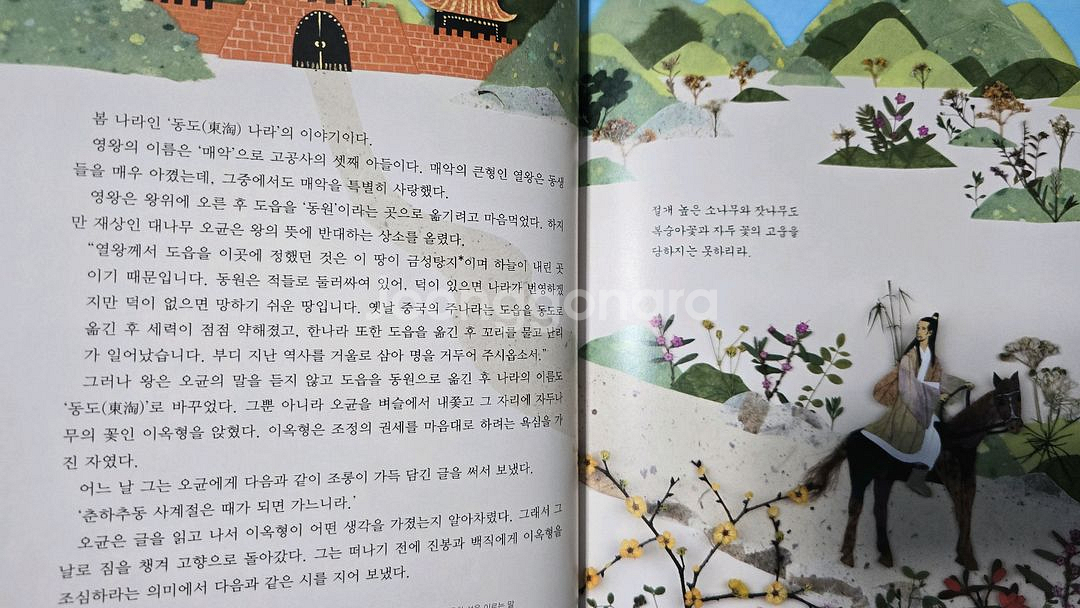 봄 나라인 '동도(東淘) 나라'의 이야기이다.
영왕의 이름은 '매악'으로 고공사의 셋째 아들이다. 매악의 큰형인 열왕은 동생
들을 매우 아꼈는데, 그중에서도 매악을 특별히 사랑했다.
영왕은 왕위에 오른 후 도읍을 '동원'이라는 곳으로 옮기려고 마음먹었다. 하지
만 재상인 대나무 오균은 왕의 뜻에 반대하는 상소를 올렸다.
"열왕께서 도읍을 이곳에 정했던 것은 이 땅이 금성탕지*이며 하늘이 내린 곳
이기 때문입니다. 동원은 적들로 둘러싸여 있어, 덕이 있으면 나라가 번영하겠
지만 덕이 없으면 망하기 쉬운 땅입니다. 옛날 중국의 주나라는 도읍을 동도로
옮긴 후 세력이 점점 약해졌고, 한나라 또한 도읍을 옮긴 후 꼬리를 물고 난리
가 일어났습니다. 부디 지난 역사를 거울로 삼아 명을 거두어 주시옵소서."
그러나 왕은 오균의 말을 듣지 않고 도읍을 동원으로 옮긴 후 나라의 이름도
'동도(東淘)'로 바꾸었다. 그뿐 아니라 오균을 벼슬에서 내쫓고 그 자리에 자두나
무의 꽃인 이옥형을 앉혔다. 이옥형은 조정의 권세를 마음대로 하려는 욕심을 가
진 자였다.
어느 날 그는 오균에게 다음과 같이 조롱이 가득 담긴 글을 써서 보냈다.
'춘하추동 사계절은 때가 되면 가느니라.'
오균은 글을 읽고 나서 이옥형이 어떤 생각을 가졌는지 알아차렸다. 그래서 그
날로 짐을 챙겨 고향으로 돌아갔다. 그는 떠나기 전에 진봉과 백직에게 이옥형을
조심하라는 의미에서 다음과 같은 시를 지어 보냈다.
이르는 말
절개 높은 소나무와 잣나무도
복숭아꽃과 자두 꽃의 고움을
당하지는 못하리라.